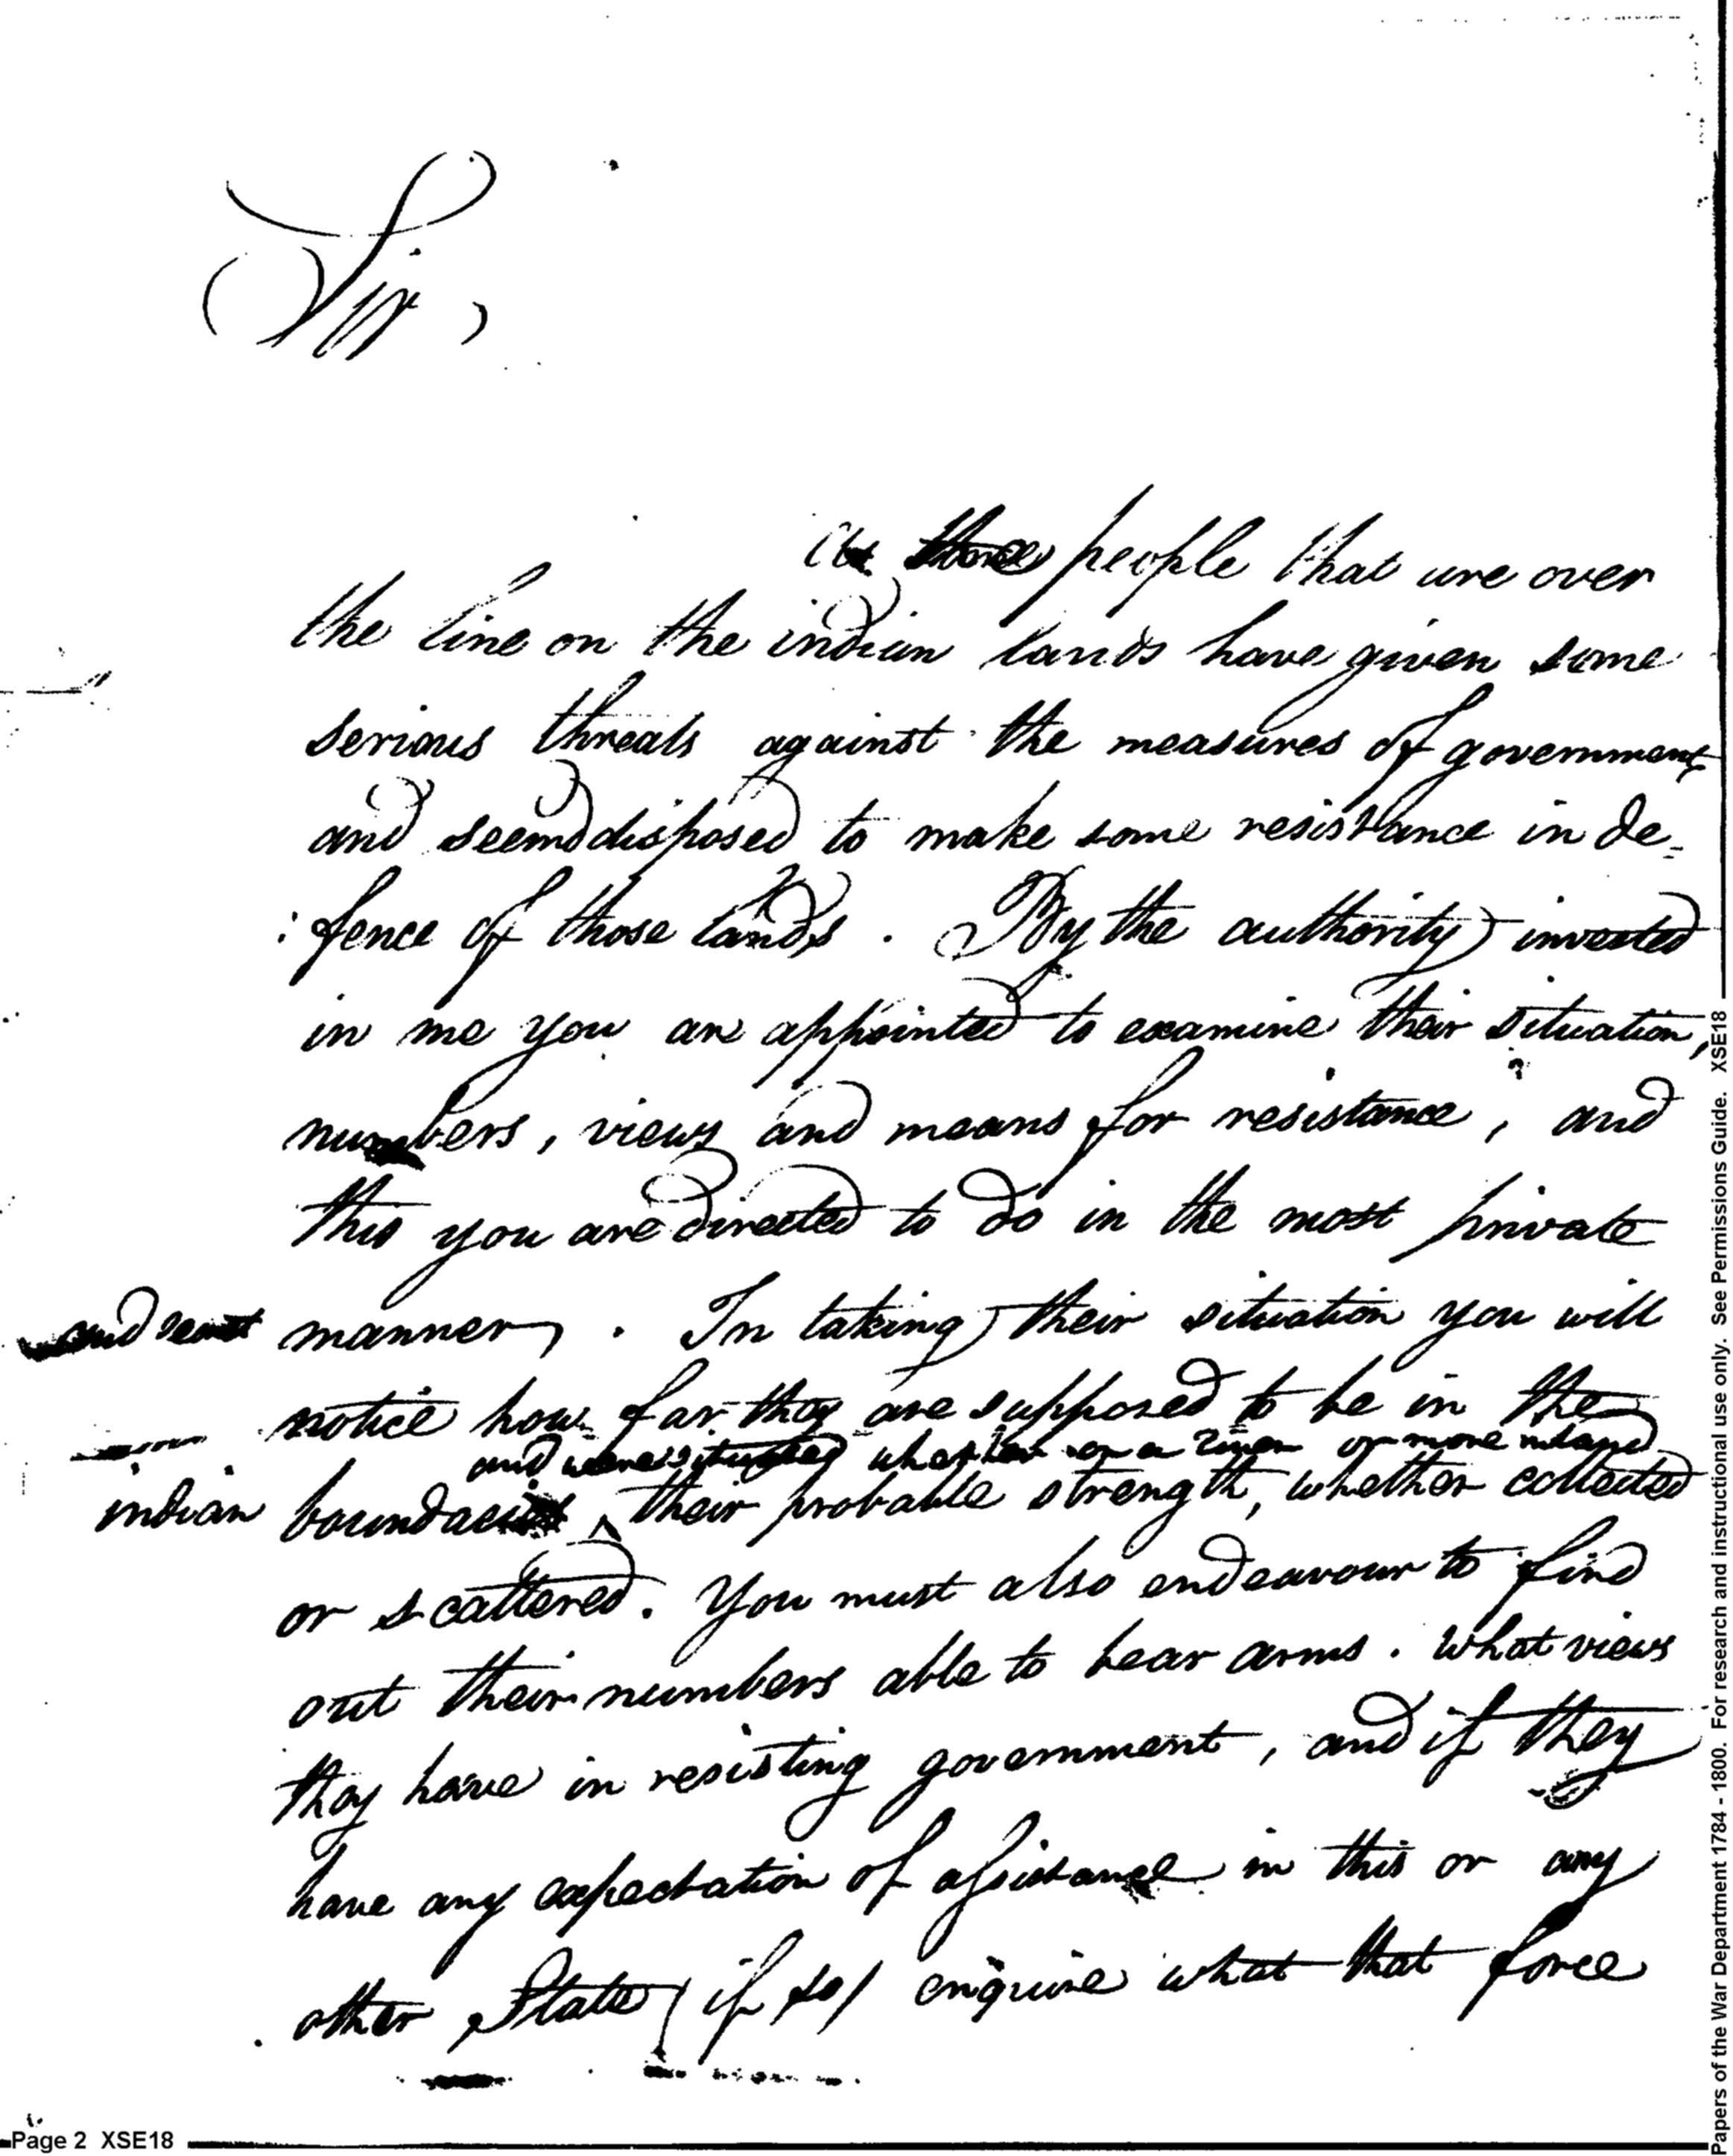 Sir,
As those people that are over
the line on the indian lands have given some
serious threats against the measures of government
and seemd disposed to make some resistance in de=
:fence of those lands. By the authority invested
in me you are appointed to examine their situation,
numbers, views and means for resistance, and
this you are directed to do in the most private
and secret manner. In taking their situation you will
notice how far they are supposed to be in the
and were situated whether on a river or more inland
indian boundaries, their probable strength, whether collected
or scattered. You must also endeavour to find
out their numbers able to bear arms. What views
they have in resisting government, and if they
have any expectation of assistance in this or any
other State (if so) enquire what that force
Page 2 XSE18
Papers of the War Department 1784 - 1800. For research and instructional use only. See Permissions Guide. XSE18